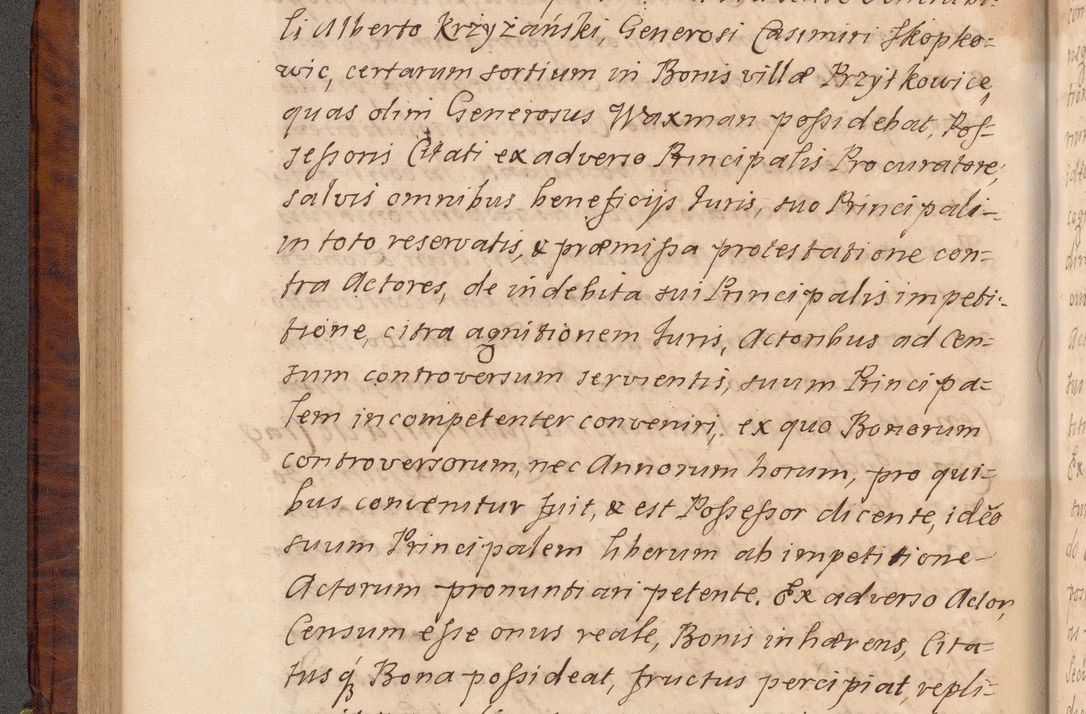 li Alberto Krzyżański, Generosi Casimiri Skopko=
wic, certarum sortium in Bonis villæ Przytkowice,
quas olim Generosus Waxman poſsidebat, Poſ=
seſsoris Citati ex adverso Principalis Procuratore,
salvis omnibus beneficijs Iuris, suo Principali=
in toto reservatis, & præmiſsa protestatione con=
tra Actores, de indebita sui Principalis impeti=
tione, citra agnitionem Iuris, Actoribus ad Cen=
sum controversum servientis, suum Principa=
lem incompetenter conveniri, ex quo Bonorum
controversorum, nec Annorum horum, pro qui=
bus convenitur fuit, & est Poſseſsor dicente, ideo
suum Principalem liberum ab impetitione
Actorum pronuntiari petente. Ex adverso Actor,
Censum eſse onus reale, Bonis inhærens, Cita=
tusq́ Bona poſsideat, fructus percipiat, repli=